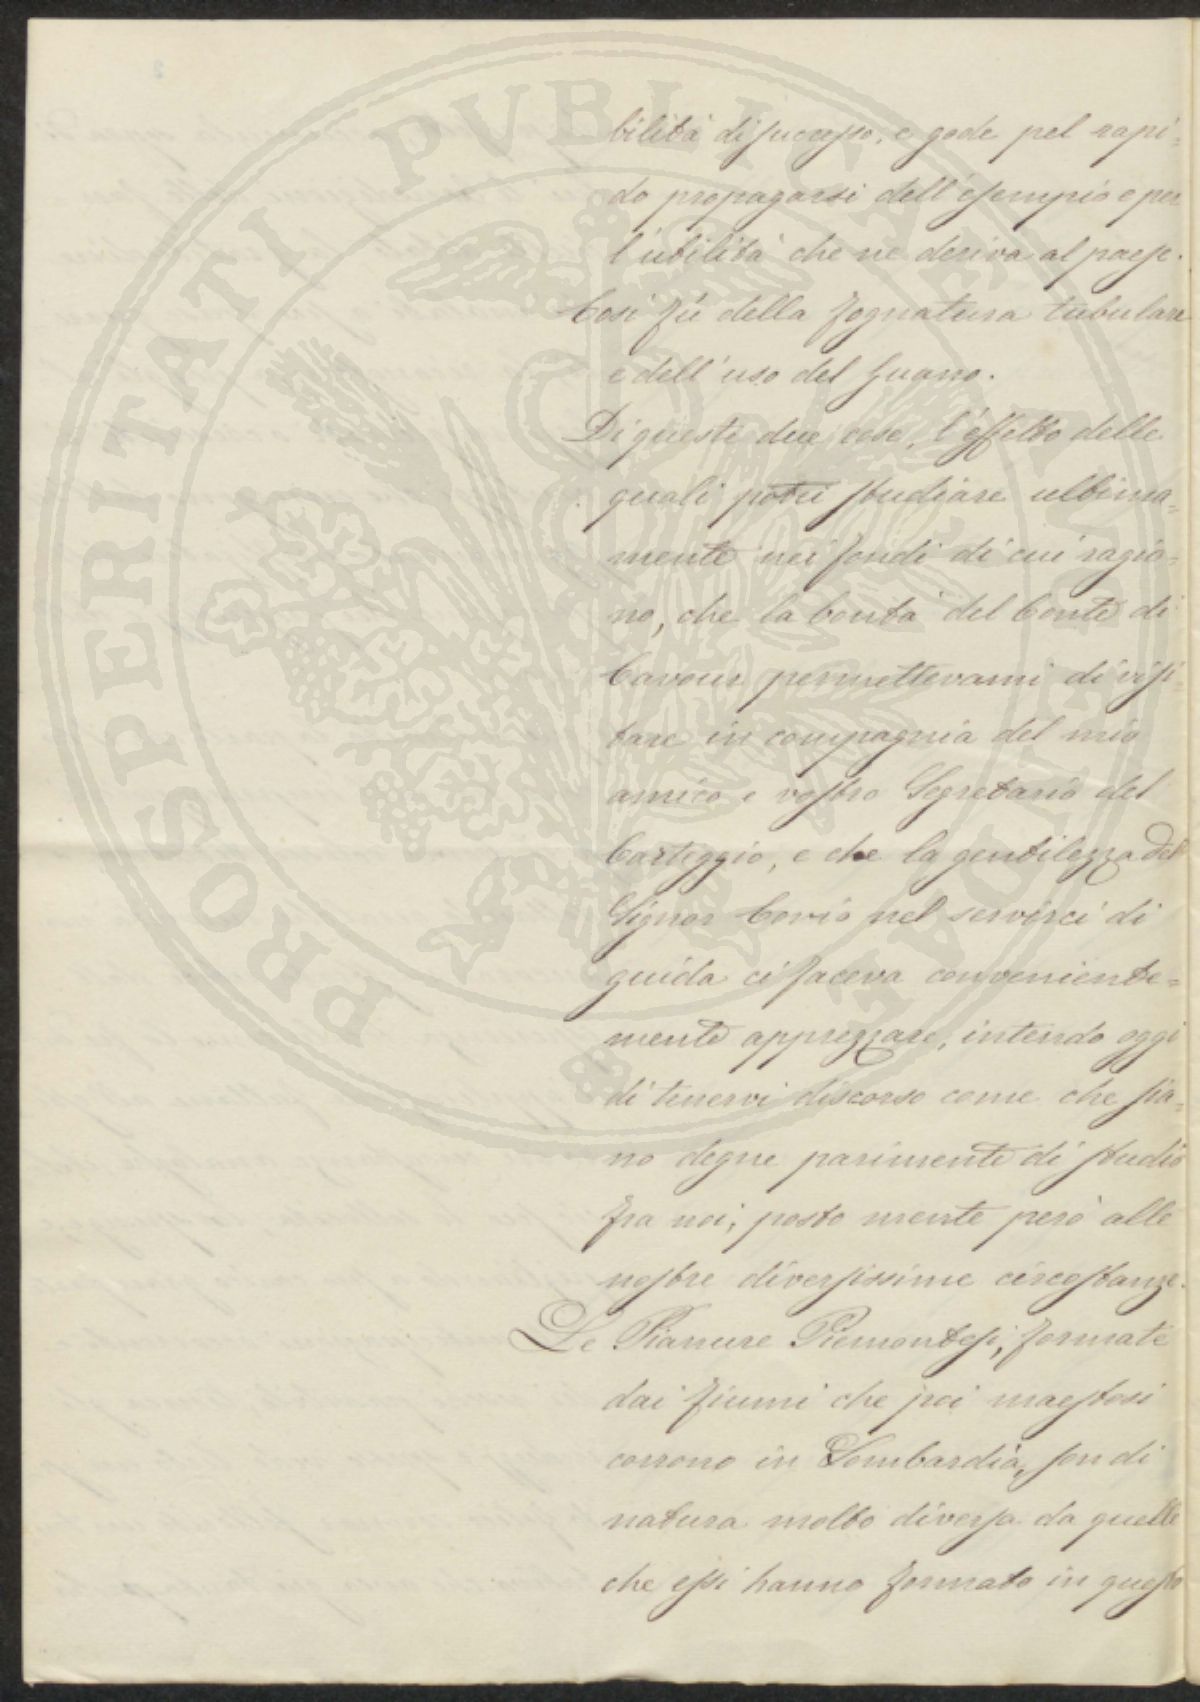 bilità di successo, e gode pel rapi-
do propagarsi dell'esempio e per
l'utilità che ne deriva al paese.
Così fù della fognatura tubulare
e dell'uso del Guano.
Di queste due cose, l'effetto delle
quali potei studiare ultima=
mente nei fondi di cui ragio-
no, che la bontà del Conte di
Cavour permettevami di visi-
tare in compagnia del mio
amico e vostro Segretario del
Carteggio, e che la gentilezza del
Signor Corio nel servirci di
guida ci faceva conveniente=
mente apprezzare, intendo oggi
di tenervi discorso come che sia-
no degne parimente di studio
fra noi; posto mente però alle
nostre diversissime circostanze.
Le Pianure Piemontesi, formate
dai fiumi che poi maestosi
corrono in Lombardia, son di
natura molto diversa da quelle
che essi hanno formato in questo
PROSPERITATI PVBLICAE AVGENDAE